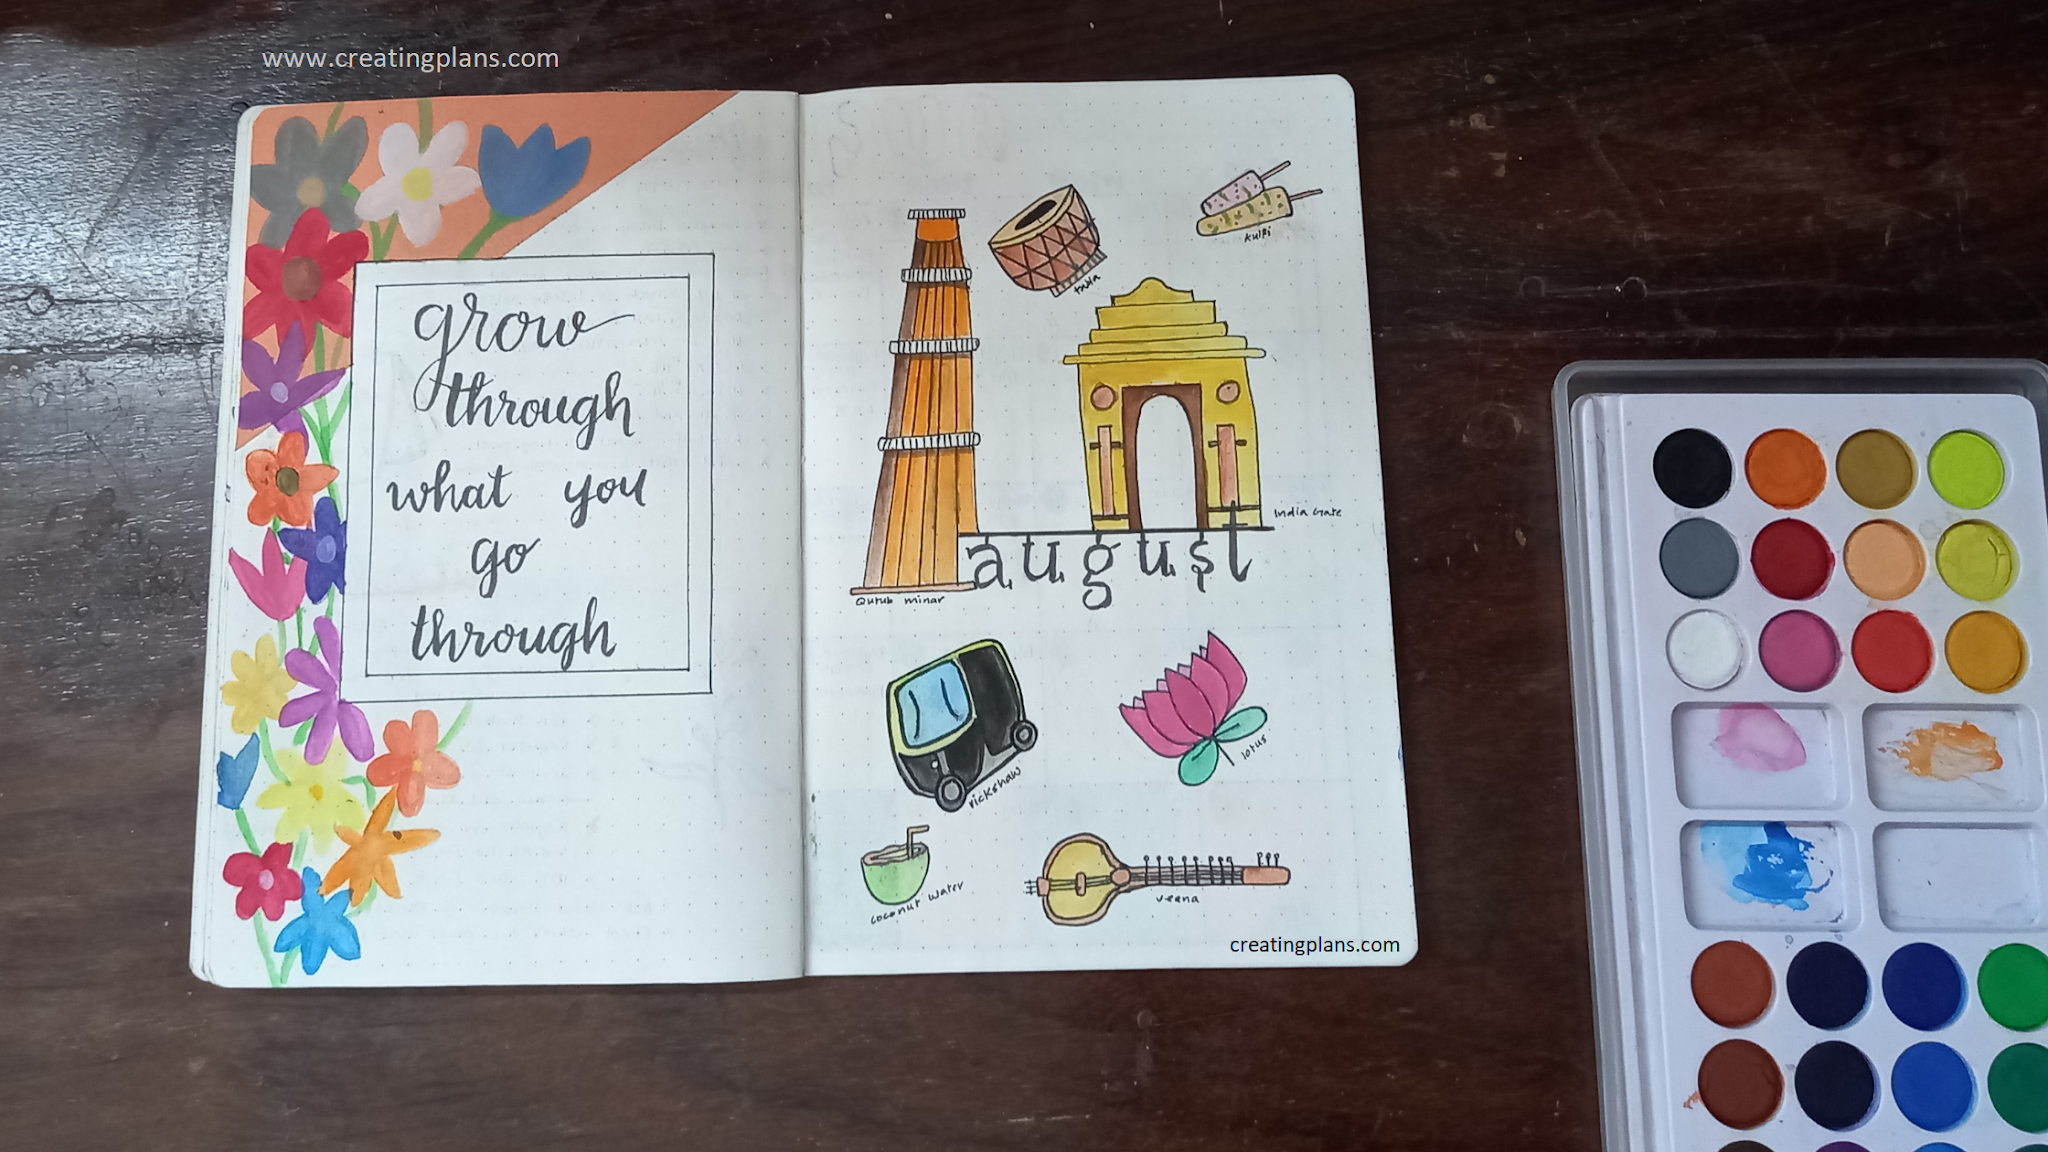 www.creatingplans.com
grow
through
what you
go
through
kulfi
India Gate
august
Qutub minar
rickshaw
lotus
coconut water
veena
creatingplans.com